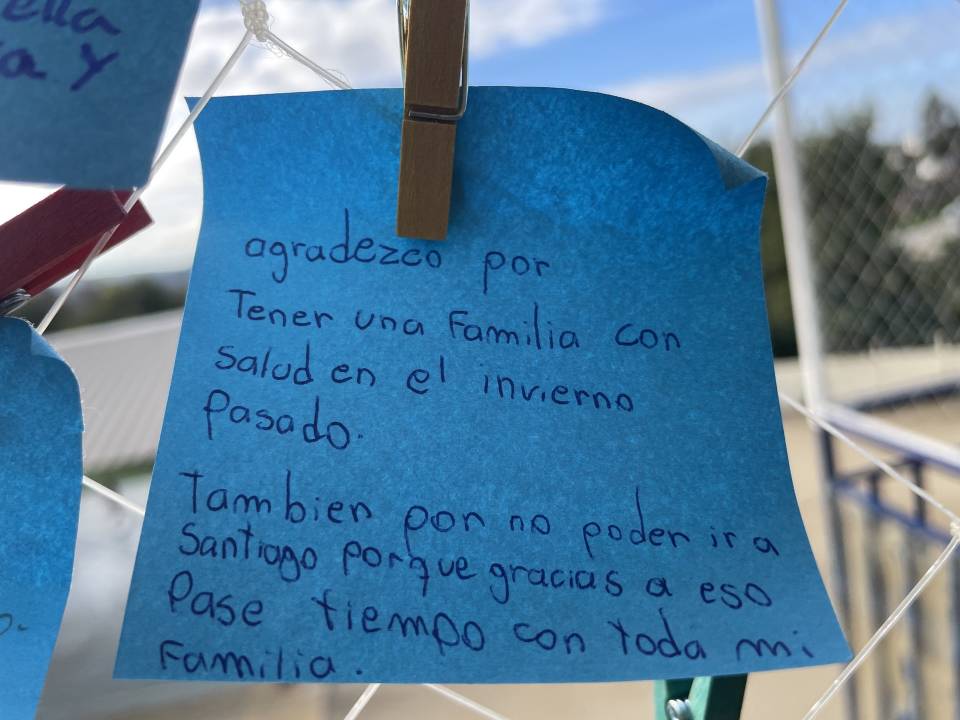 ella
a y
agradezco por
Tener una Familia con
salud en el invierno
Pasado.
Tambien por no poder ir a
Santiago porque gracias a eso
Pase tiempo con toda mi
Familia.